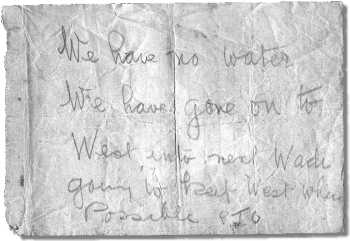 We have no water
We have gone on to
West, into next Wadi
going to keep West where
Possible